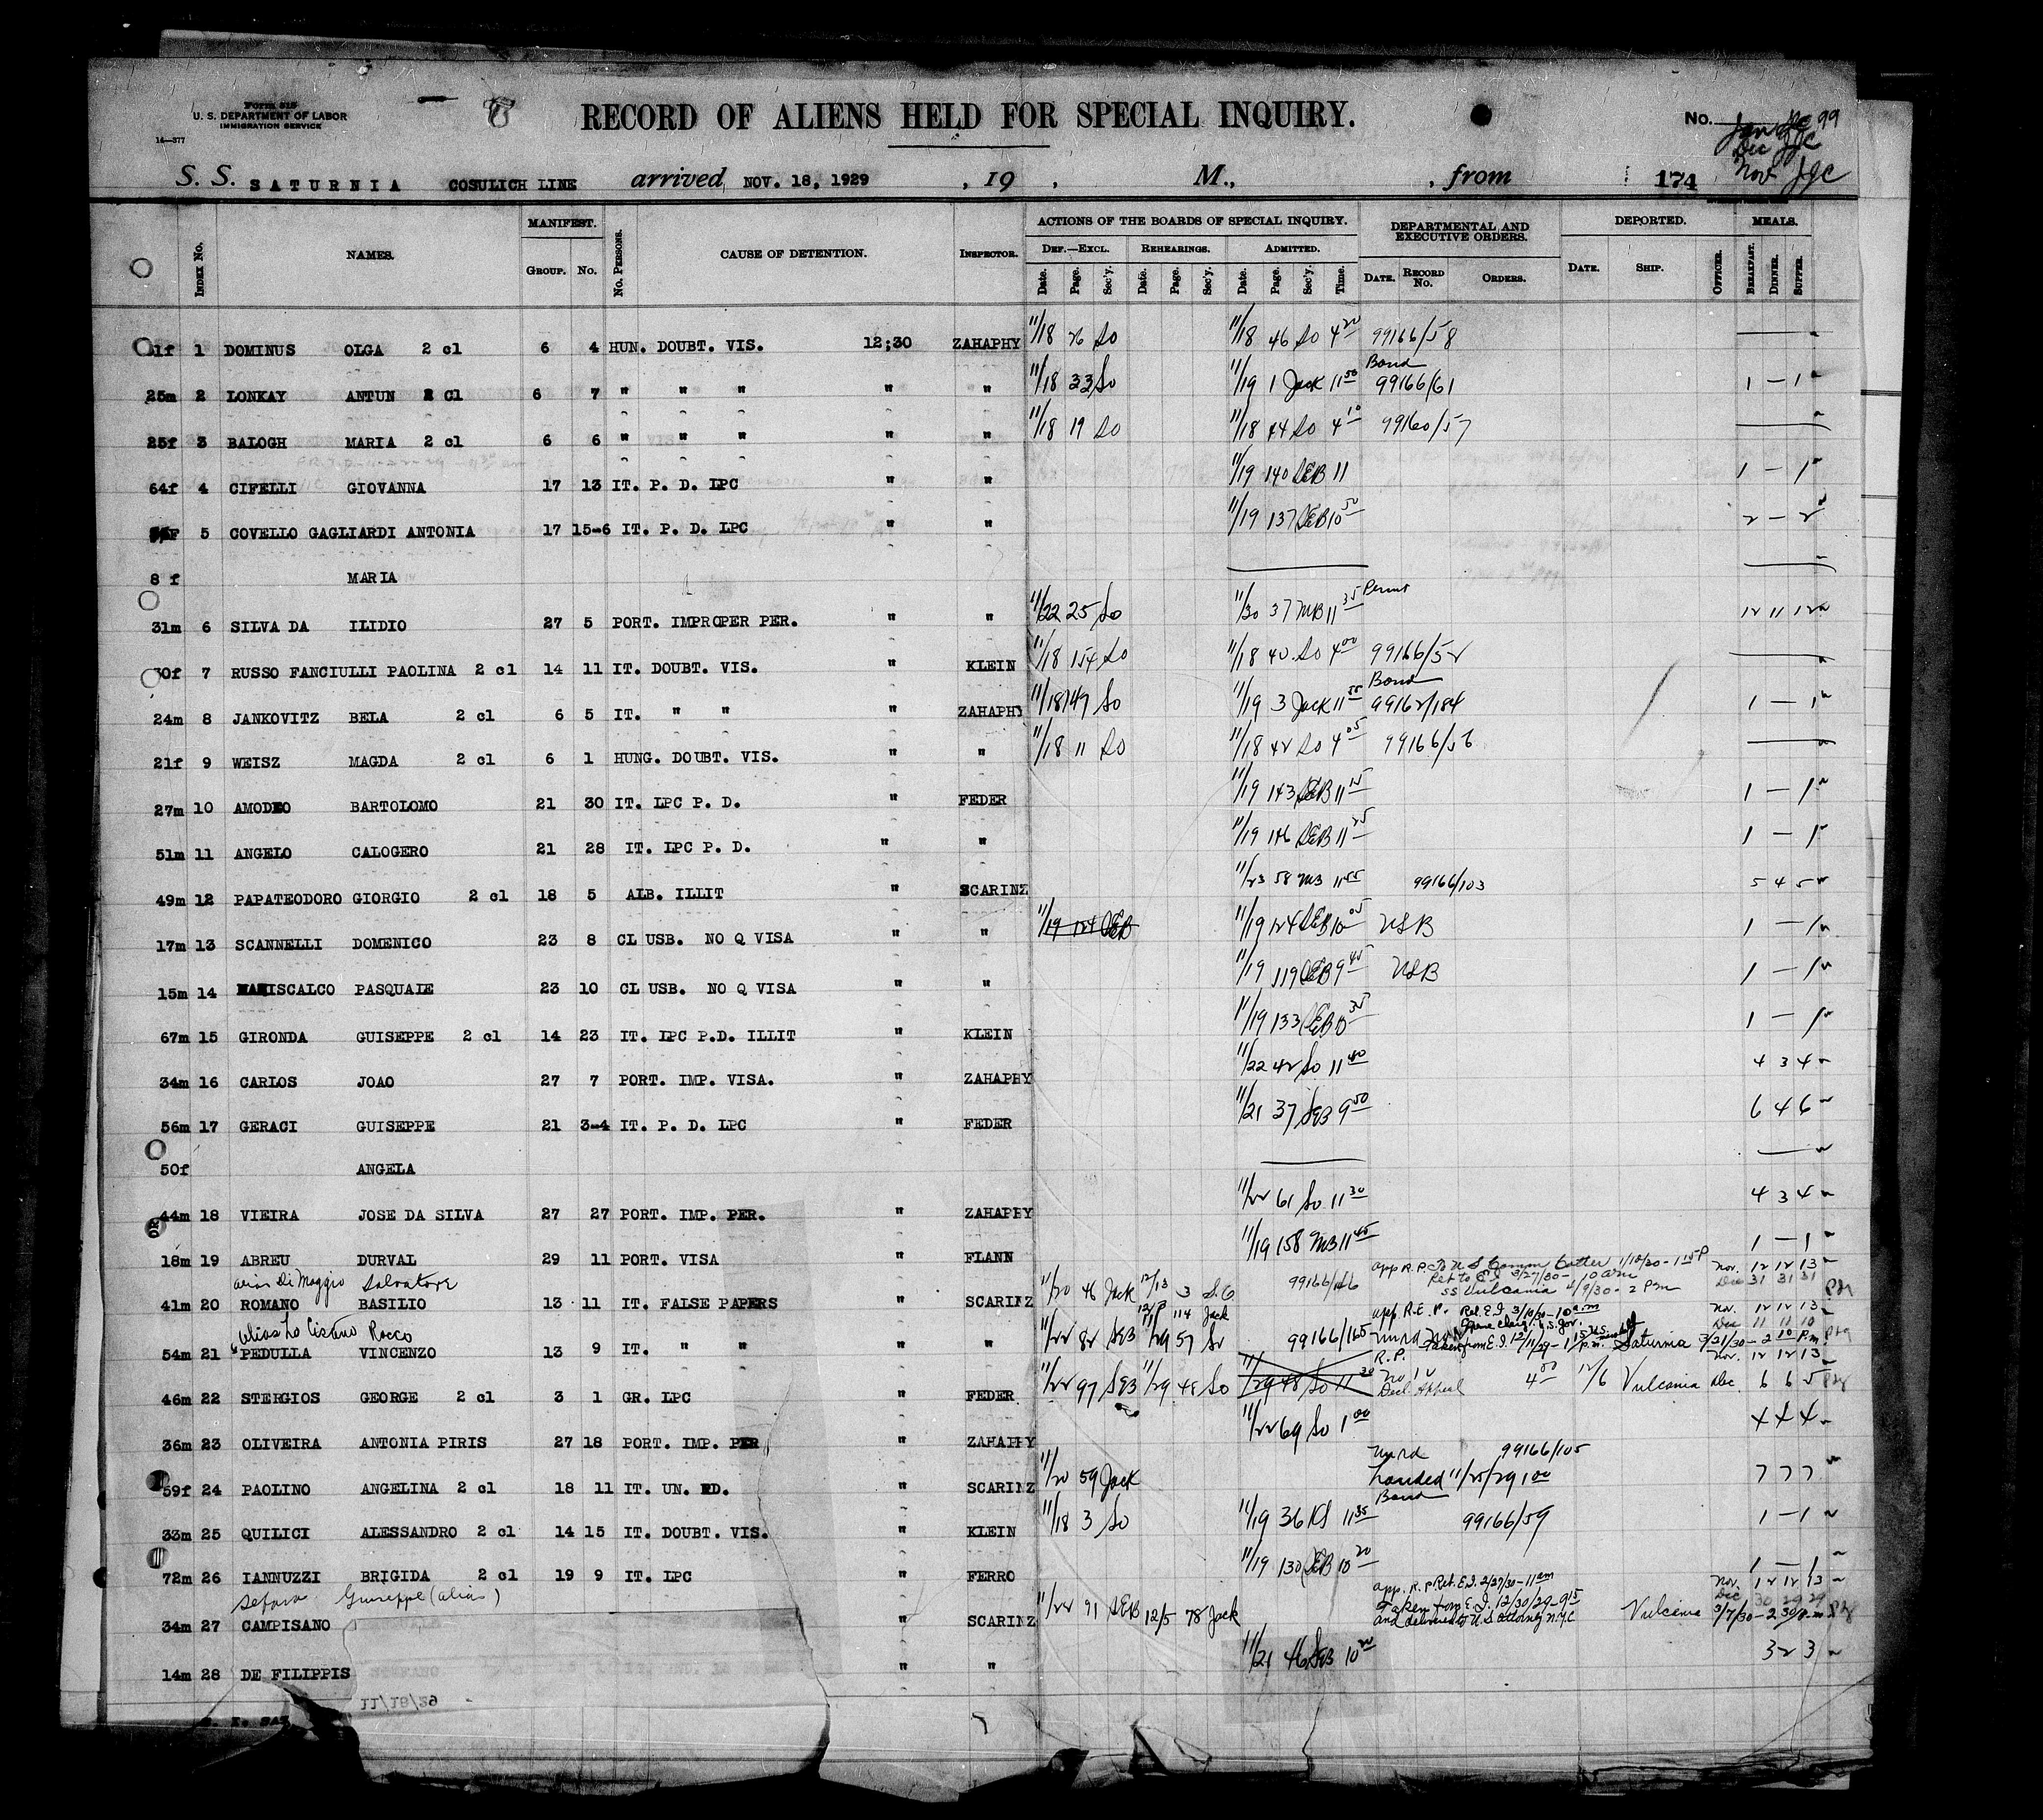 Form 518
U. S. DEPARTMENT OF LABOR
IMMIGRATION SERVICE
14—377
RECORD OF ALIENS HELD FOR SPECIAL INQUIRY.
No. 99
Dec JJC
Nov JJC
S. S. SATURNIA COSULICH LINE arrived NOV. 18, 1929 , 19 , M., , from 174
Index No. NAMES. MANIFEST. Group. No. No. Persons. CAUSE OF DETENTION. Inspector. ACTIONS OF THE BOARDS OF SPECIAL INQUIRY. DEPARTMENTAL AND EXECUTIVE ORDERS. DEPORTED. MEALS.
Def.—Excl. Rehearings. Admitted.
Date. Page. Sec'y. Date. Page. Sec'y. Date. Page. Sec'y. Time. Date. Record No. Orders. Date. Ship. Officer. Breakfast. Dinner. Supper.
1f 1 DOMINUS OLGA 2 cl 6 4 HUN. DOUBT. VIS. 12;30 ZAHAPHY 11/18 76 So 11/18 46 So 4 20 99166/58
25m 2 LONKAY ANTUN 2 Cl 6 7 " " " " " 11/18 33 So 11/19 1 Jack 11 50 Bond 99166/61 1 — 1
25f 3 BALOGH MARIA 2 cl 6 6 " " " " " 11/18 19 So 11/18 44 So 4 10 99160/57
64f 4 CIFELLI GIOVANNA 17 13 IT. P. D. LPC " " 11/19 140 SEB 11 1 — 1
F 5 COVELLO GAGLIARDI ANTONIA 17 15-6 IT. P. D. LPC " " 11/19 137 SEB 10 50 2 — 2
8 f MARIA
31m 6 SILVA DA ILIDIO 27 5 PORT. IMPROPER PER. " " 11/22 25 So 11/30 37 MB 11 35 Permit 12 11 12
30f 7 RUSSO FANCIULLI PAOLINA 2 cl 14 11 IT. DOUBT. VIS. " KLEIN 11/18 154 So 11/18 40 So 4 00 99166/52
24m 8 JANKOVITZ BELA 2 cl 6 5 IT. " " " ZAHAPHY 11/18 147 So 11/19 3 Jack 11 55 Bond 99162/184 1 — 1
21f 9 WEISZ MAGDA 2 cl 6 1 HUNG. DOUBT. VIS. " " 11/18 11 So 11/18 42 So 4 05 99166/56
27m 10 AMODEO BARTOLOMO 21 30 IT. LPC P. D. " FEDER 11/19 143 SEB 11 15 1 — 1
51m 11 ANGELO CALOGERO 21 28 IT. LPC P. D. " " 11/19 146 SEB 11 25 1 — 1
49m 12 PAPATEODORO GIORGIO 2 cl 18 5 ALB. ILLIT " SCARINZ 11/23 58 MB 11 55 99166/103 5 4 5
17m 13 SCANNELLI DOMENICO 23 8 CL USB. NO Q VISA " " 11/19 124 SEB 11/19 124 SEB 10 05 USB 1 — 1
15m 14 MANISCALCO PASQUALE 23 10 CL USB. NO Q VISA " " 11/19 119 SEB 9 45 USB 1 — 1
67m 15 GIRONDA GUISEPPE 2 cl 14 23 IT. LPC P.D. ILLIT " KLEIN 11/19 133 SEB 10 35 1 — 1
34m 16 CARLOS JOAO 27 7 PORT. IMP. VISA. " ZAHAPHY 11/22 42 So 11 40 4 3 4
56m 17 GERACI GUISEPPE 21 3-4 IT. P. D. LPC " FEDER 11/21 37 SEB 9 50 6 4 6
50f ANGELA
44m 18 VIEIRA JOSE DA SILVA 27 27 PORT. IMP. PER. " ZAHAPHY 11/22 61 So 11 30 4 3 4
18m 19 ABREU DURVAL 29 11 PORT. VISA " FLANN 11/19 158 MB 11 45 1 — 1
alias Di Maggio Salvatore app R.P. To U S Comm 1/10/30 - 1 15 P Nov. 12 12 13
Ret to E I 3/27/30 - 10 am Dec 31 31 31
41m 20 ROMANO BASILIO 13 11 IT. FALSE PAPERS " SCARINZ 11/20 46 Jack 12/13 3 S.G 99166/ SS Vulcania 4/9/30 - 2 Pm
alias Lo Cisano Rocco 114 Jack app R.E.P. Ret. E.I. 3/10/30 - 10 am Nov. 12 12 13
Dec 11 11 10
54m 21 PEDULLA VINCENZO 13 9 IT. " " " " 11/22 82 SEB 11/29 57 So 99166/165 Taken from E.I. 12/11/29 Saturnia 3/21/30 - 2 10 P.m.
46m 22 STERGIOS GEORGE 2 cl 3 1 GR. LPC " FEDER 11/22 97 SEB 11/29 48 So 11/29 48 So 11 30 R.P. Decl Appeal 4 00 12/6 Vulcania Nov. 12 12 13 Dec. 6 6 5
36m 23 OLIVEIRA ANTONIA PIRIS 27 18 PORT. IMP. PER. " ZAHAPHY 11/22 69 So 1 00 4 4 4
59f 24 PAOLINO ANGELINA 2 cl 18 11 IT. UN. RD. " SCARINZ 11/20 59 Jack 99166/105 Landed 11/25/29 1 00 7 7 7
33m 25 QUILICI ALESSANDRO 2 cl 14 15 IT. DOUBT. VIS. " KLEIN 11/18 3 So 11/19 36 KS 11 35 Bond 99166/59 1 — 1
72m 26 IANNUZZI BRIGIDA 2 cl 19 9 IT. LPC " FERRO 11/19 130 SEB 10 20 1 — 1
Guiseppe (alias) app. R.P. Ret. E.I. 2/27/30 - 11 am Nov. 12 12 13
Taken from E.I. 12/30/29 - 9 15 Dec 30 29 29
34m 27 CAMPISANO " SCARINZ 11/22 91 SEB 12/5 78 Jack and delivered to U S attorney N.Y.C Vulcania 3/7/30 - 2 30 p.m.
14m 28 DE FILIPPIS " " 11/21 46 SEB 10 20 3 2 3
11/18/29